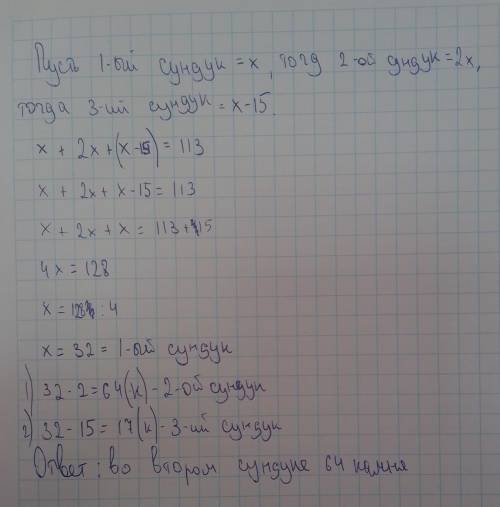 Пусть 1-ый сундук = x, тогд 2-ой дндук = 2x,
тогда 3-ий сундук = x-15.
x + 2x + (x-15) = 113
x + 2x + x - 15 = 113
x + 2x + x = 113 + 15
4x = 128
x = 128 : 4
x = 32 = 1-ый сундук
1) 32 · 2 = 64 (к) - 2-ой сундук
2) 32 - 15 = 17 (к) - 3-ий сундук
Ответ: во втором сундуке 64 камня